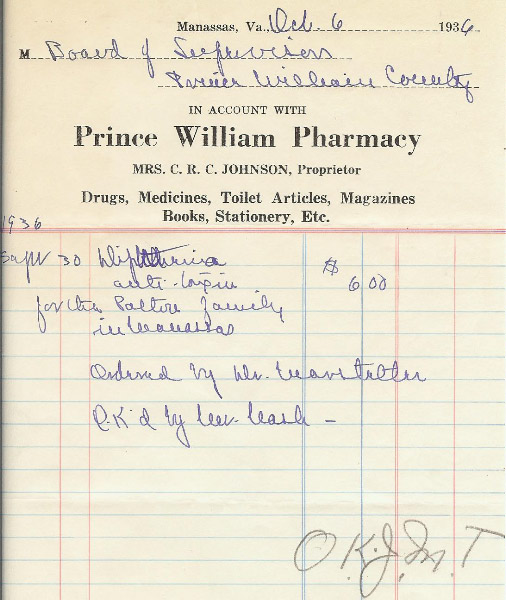 Manassas, Va. Oct. 6 1936
M Board of Supervisors
Prince William County
IN ACCOUNT WITH
Prince William Pharmacy
MRS. C. R. C. JOHNSON, Proprietor
Drugs, Medicines, Toilet Articles, Magazines
Books, Stationery, Etc.
1936
Sept 30 Diphtheria
anti-toxin $ 6 00
for the Patton family
in Manassas
Ordered by Dr. Marsteller
O.K'd by Mr.
O.K. J. M. T